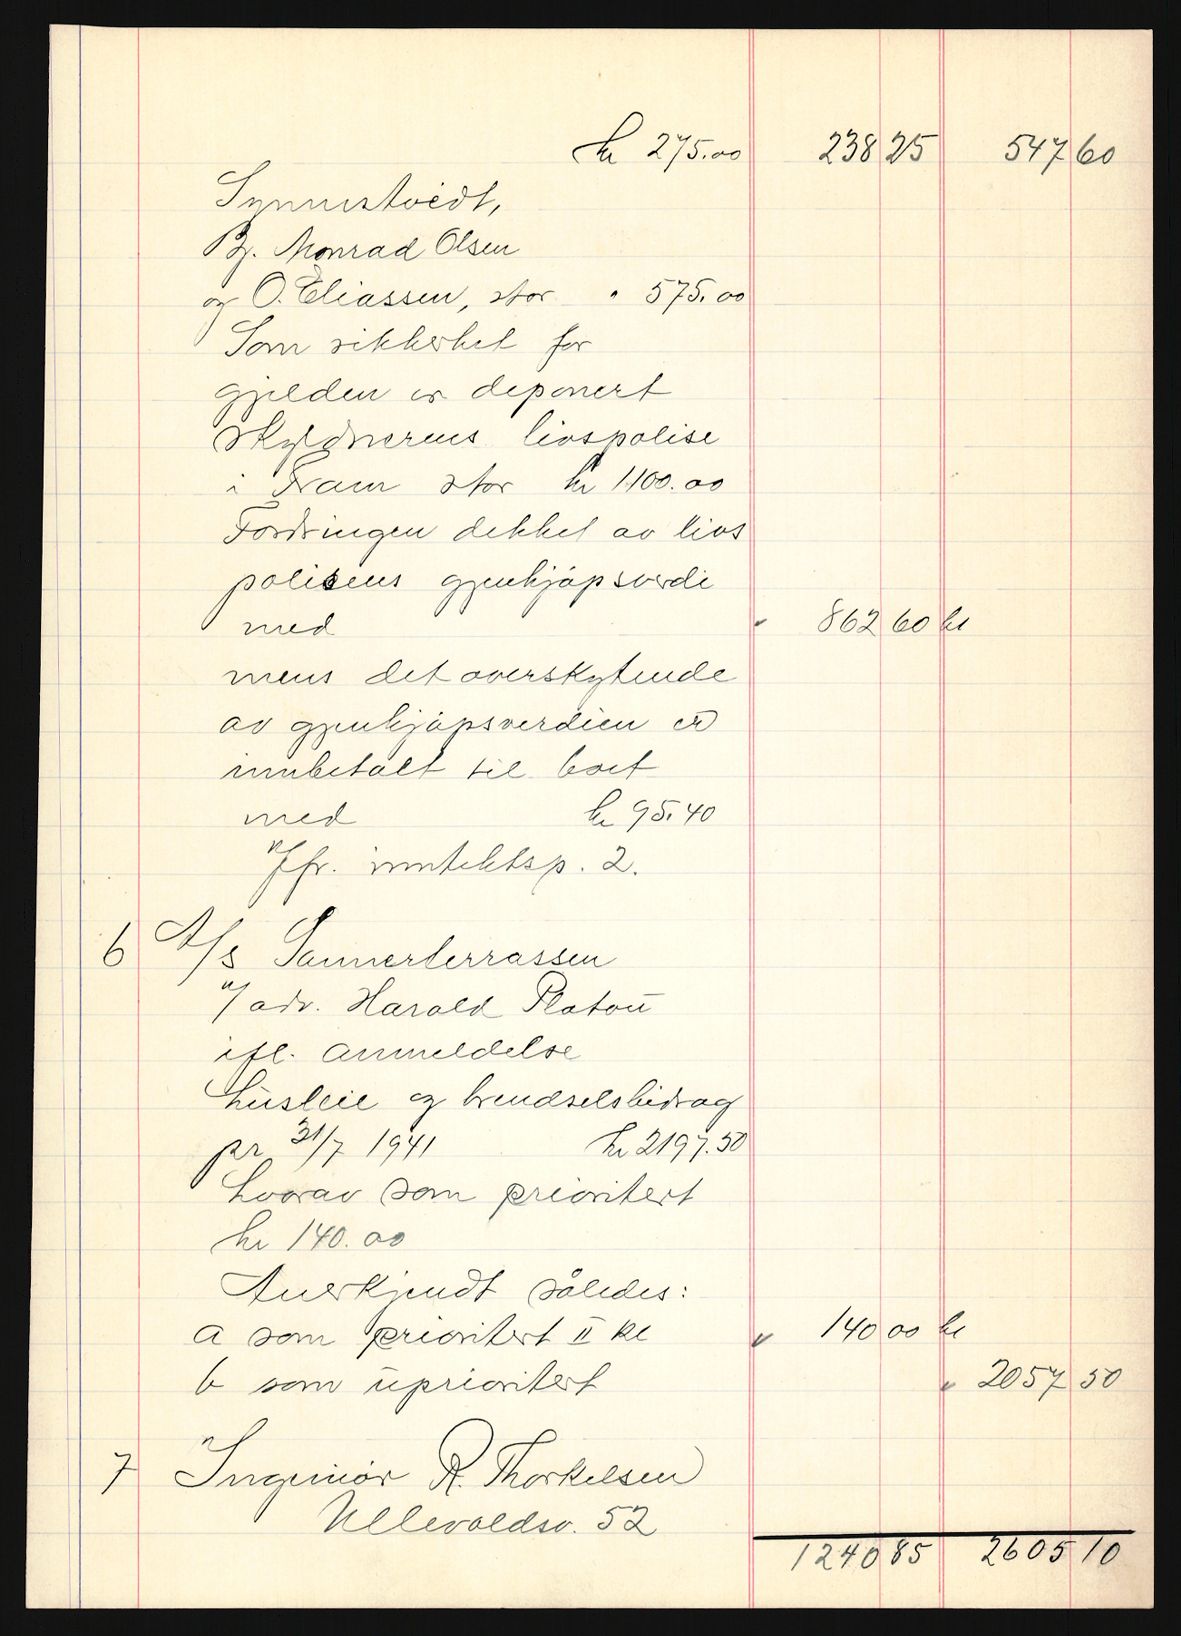 kr 275.00 238 25 547 60
Synnestvedt,
Bj. Monrad Olsen
og O. Eliassen, stor " 575.00
Som sikkerhet for
gjelden er deponert
skyldnerens livspolise
i Fram stor kr 1100.00
Fordringen dekket av livs
polisens gjenkjöpsverdi
med " 862 60 kr
mens det overskytende
av gjenkjöpsverdien er
innbetalt til boet
med kr 95.40
Jfr. inntektsp. 2.
6 A/s Sannerterrassen
v/ adv. Harald Platou
ifl. anmeldelse
husleie og brendselsbidrag
pr 31/7 1941 kr 2197.50
hvorav som prioritert
kr 140.00
Anerkjendt således:
a som prioritert II kl " 140 00 kr
b som uprioritert " 2057 50
7 Ingeniör R. Thorkelsen
Ullevoldsv. 52
1240 85 2605 10